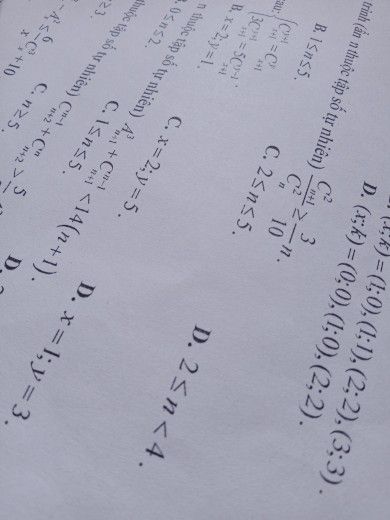 D. (x;k) = (1;0), (1;1), (2;2), (3;3).
D. (x;k) = (0;0), (1;0), (2;2).
trình (ẩn n thuộc tập số tự nhiên) C²ₙ₊₁ / C²ₙ ≥ 3/10 n.
B. 1 ≤ n ≤ 5. C. 2 ≤ n ≤ 5. D. 2 ≤ n < 4.
B. x = 2; y = 1. C. x = 2; y = 5. D. x = 1; y = 3.
n thuộc tập số tự nhiên) A³ₙ₊₁ + Cⁿ⁻¹ₙ₊₁ < 14(n+1).
0 ≤ n ≤ 2. C. 1 ≤ n ≤ 5. D.
thuộc tập số tự nhiên) Cⁿ⁻¹ₙ₊₂ + Cⁿₙ₊₂ > 5
≥ 3. C. n ≥ 5. D.
+ 10